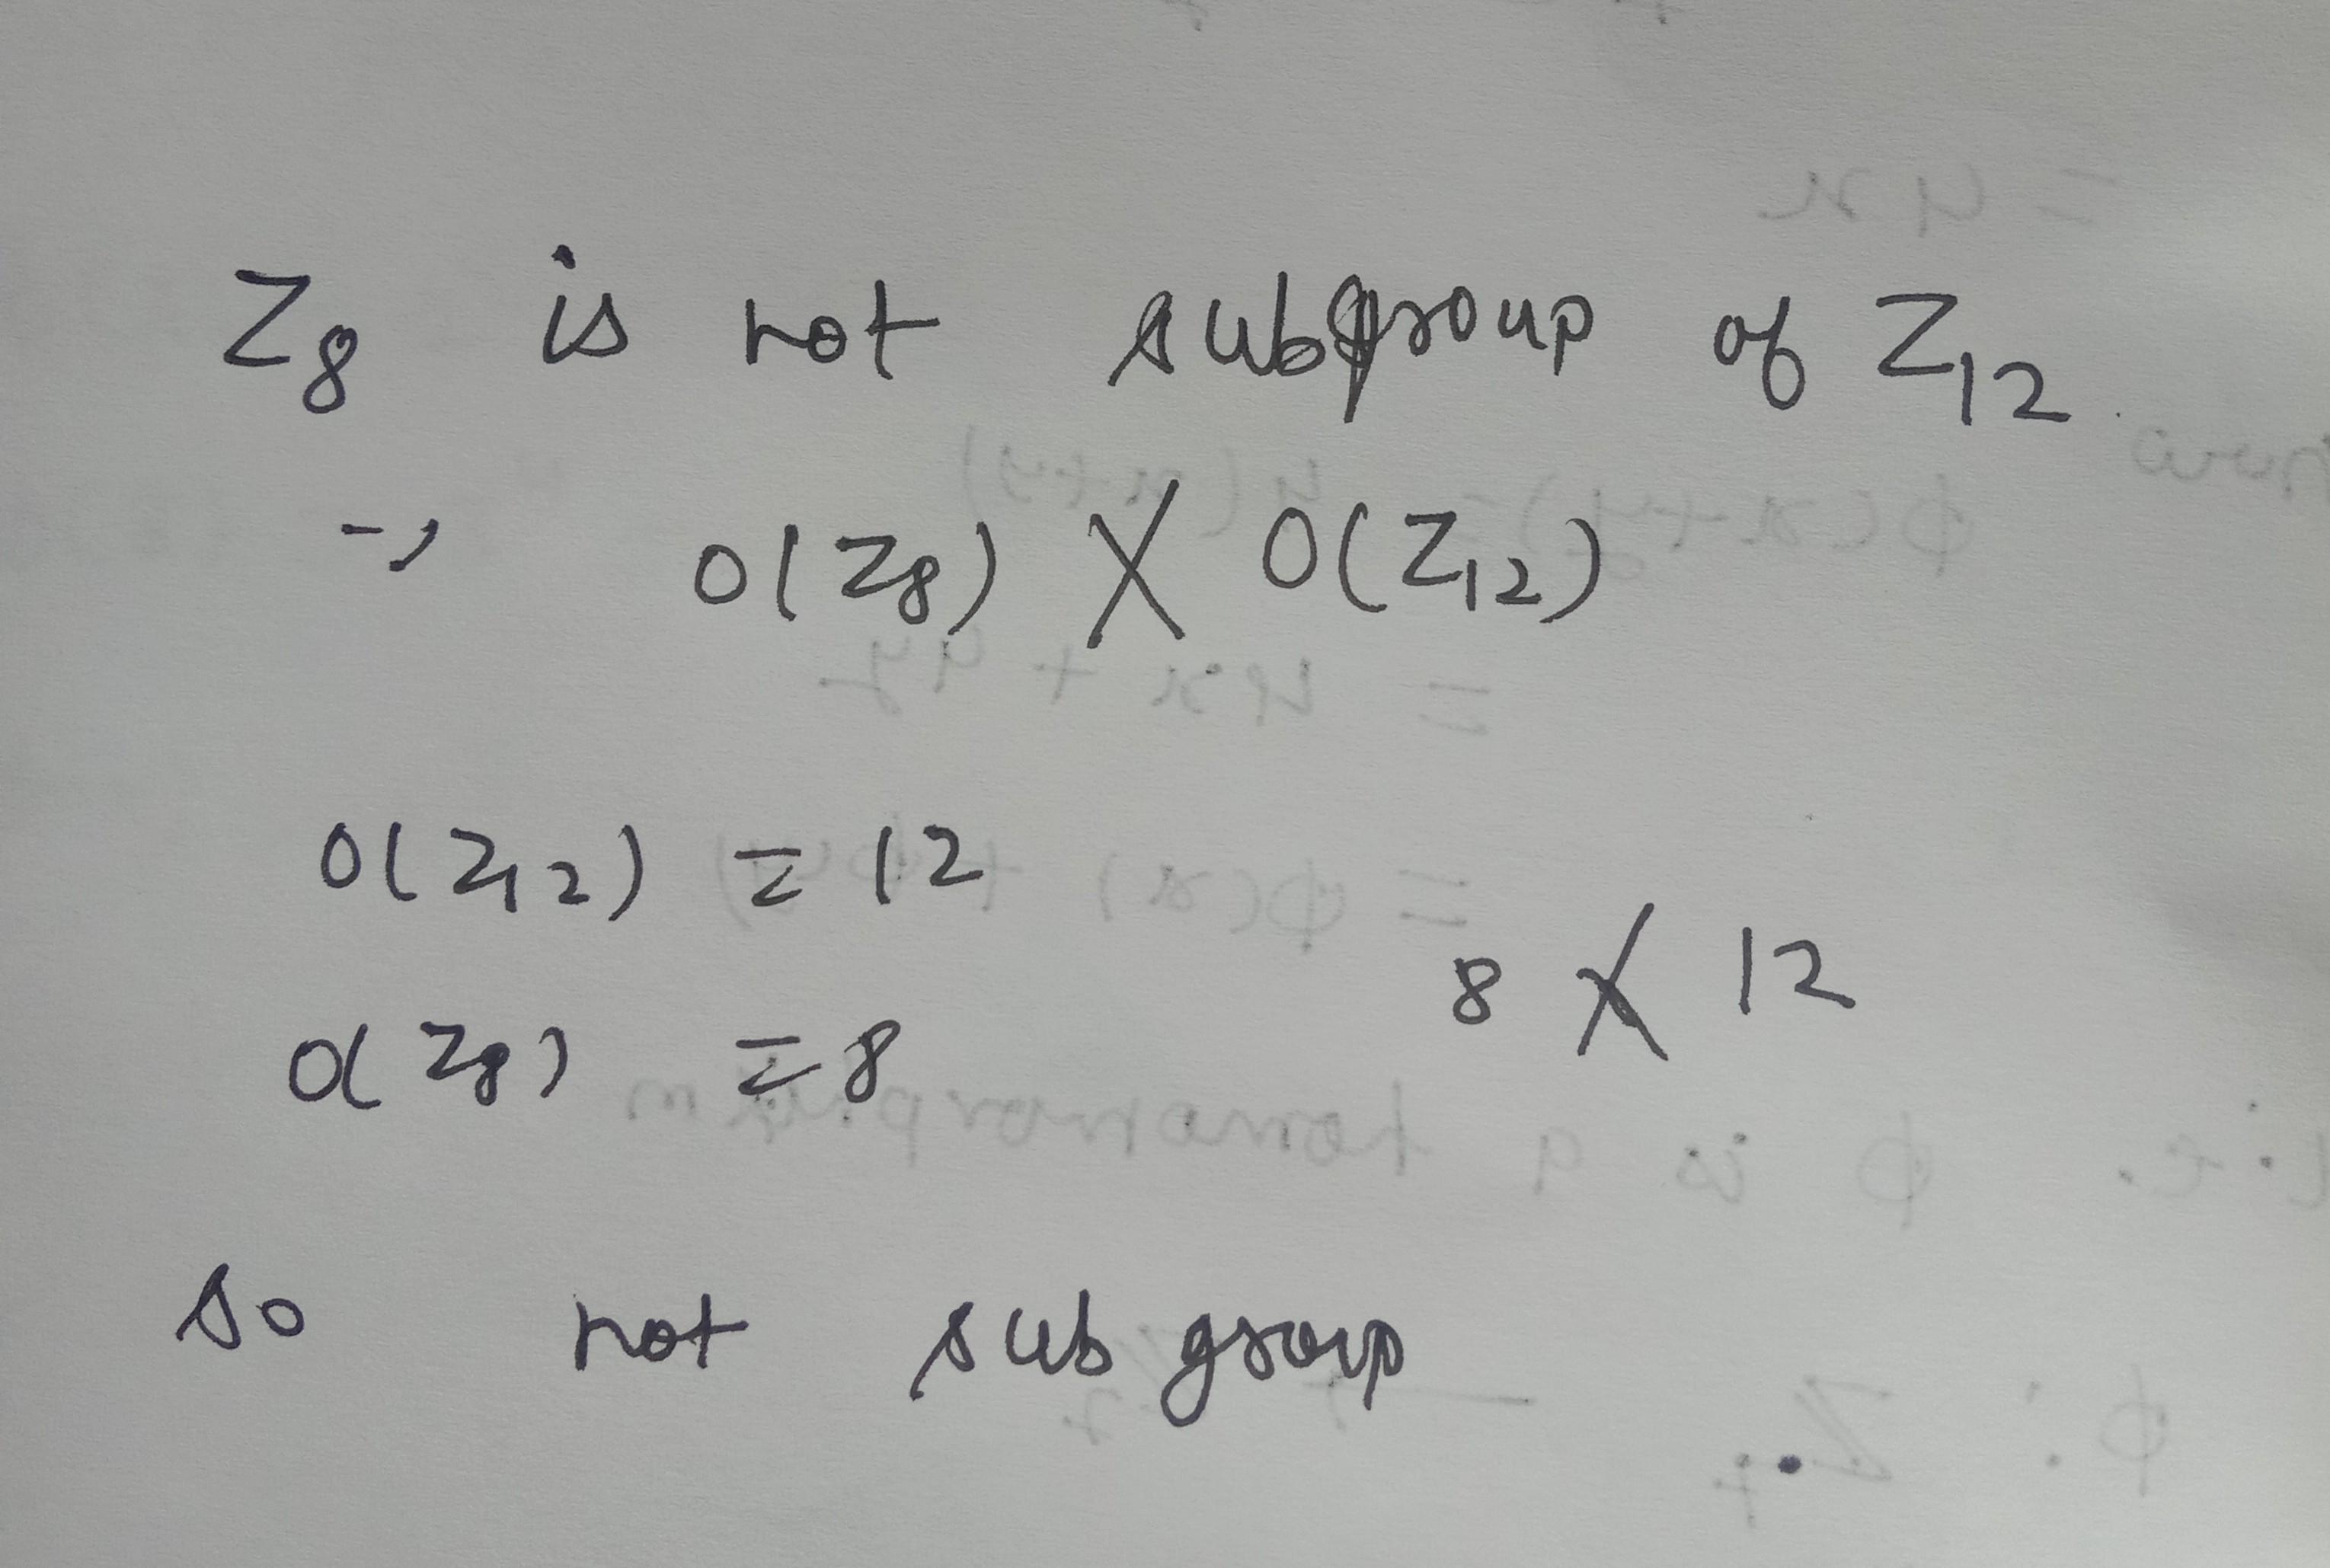 Z₈ is not subgroup of Z₁₂
→ O(Z₈) ∤ O(Z₁₂)
O(Z₁₂) = 12
8 ∤ 12
O(Z₈) = 8
so not subgroup